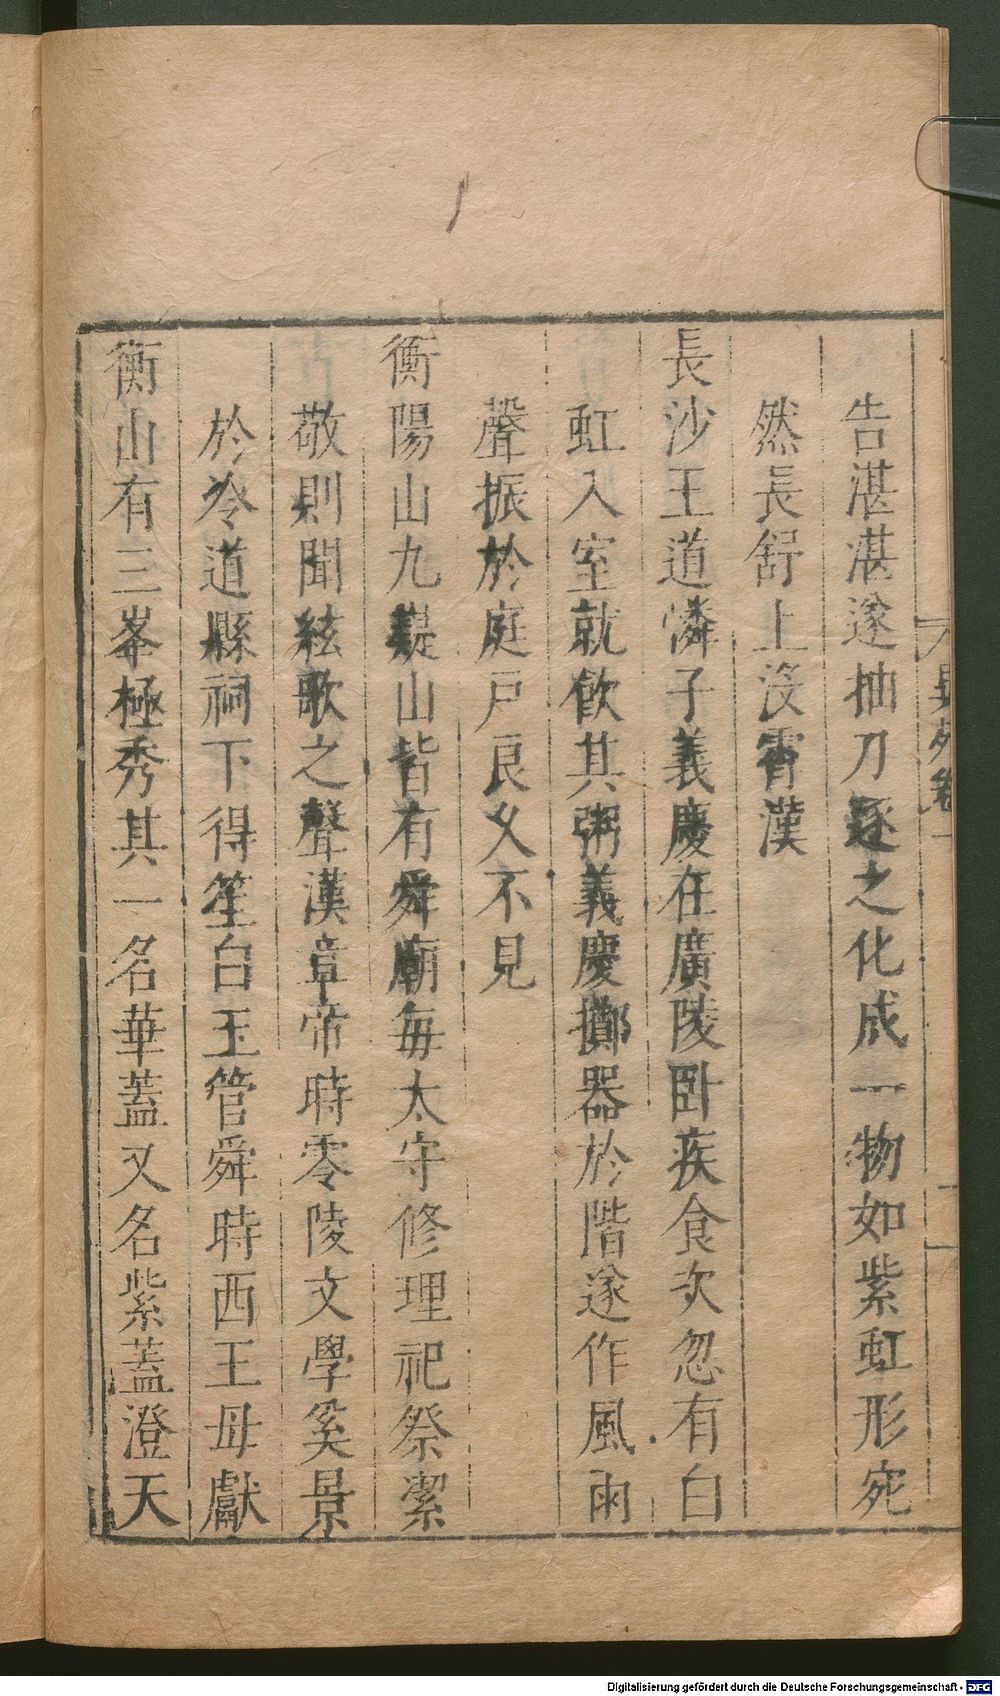 異苑卷一
告湛湛遂抽刀逐之化成一物如紫虹形宛
然長舒上没霄漢
長沙王道憐子義慶在廣陵卧疾食次忽有白
虹入室就飲其粥義慶擲器於階遂作風雨
聲振於庭戸良乆不見
衡陽山九嶷山皆有舜廟每太守修理祀祭潔
敬則聞絃歌之聲漢章帝時零陵文學奚景
於冷道縣祠下得笙白玉管舜時西王母獻
衡山有三峯極秀其一名華蓋又名紫蓋澄天
Digitalisierung gefördert durch die Deutsche Forschungsgemeinschaft - DFG